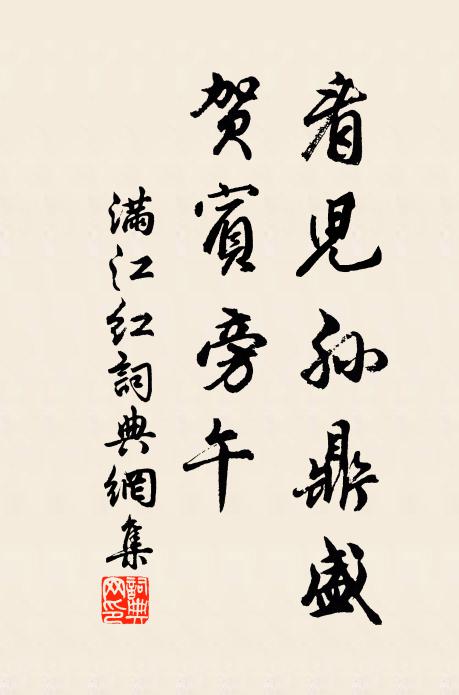 看兒孫鼎盛
賀賓旁午
滿江紅詞典網集
詞典网印